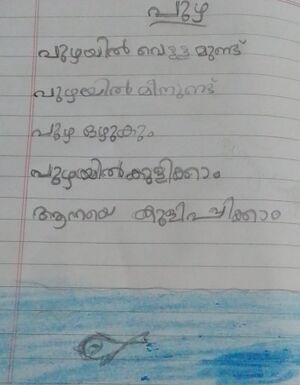 പുഴ
പുഴയിൽ വെള്ളമുണ്ട്
പുഴയിൽ മീനുണ്ട്
പുഴ ഒഴുകും
പുഴയിൽക്കുളിക്കാം
ആനയെ കുളിപ്പിക്കാം